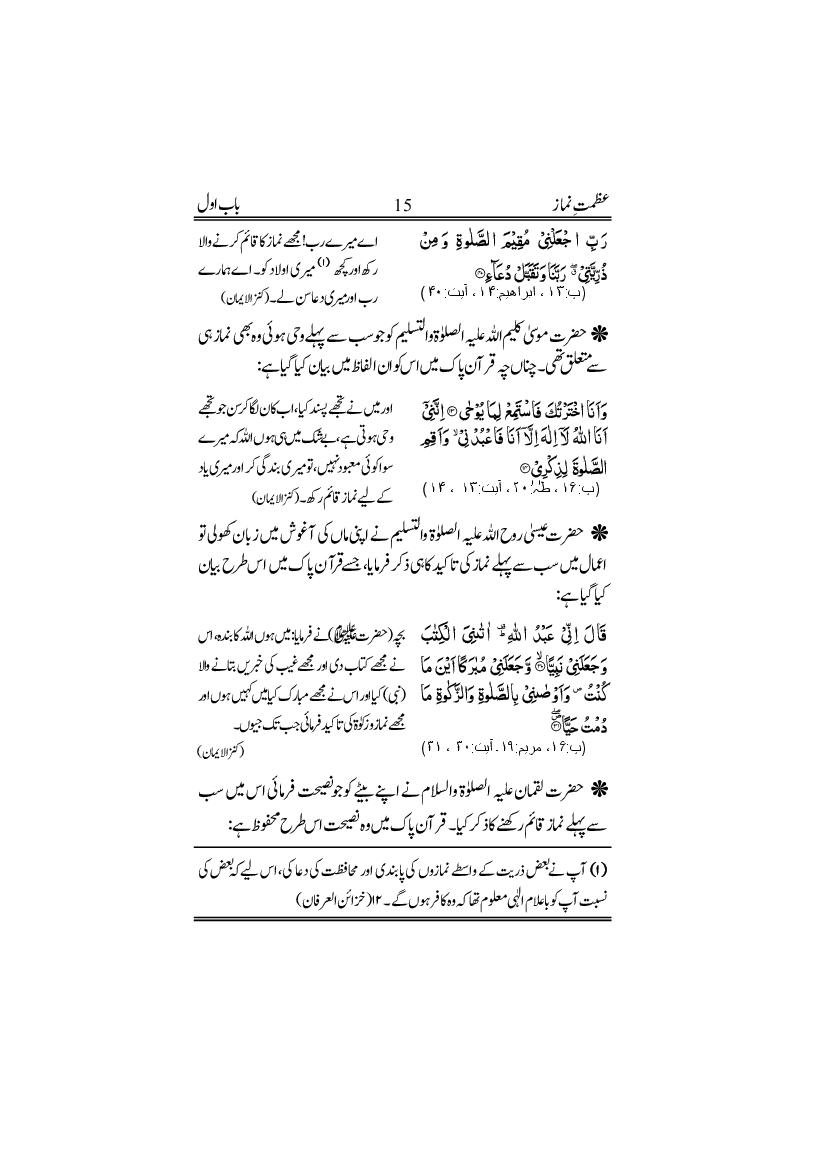 عظمتِ نماز 15 باب اول
رَبِّ اجْعَلْنِیْ مُقِیْمَ الصَّلٰوةِ وَ مِنْ
ذُرِّیَّتِیْ ۖۗ رَبَّنَا وَتَقَبَّلْ دُعَآءِ ۝۴۰
(پ:۱۳، ابراھیم:۱۴، آیت:۴۰)
اے میرے رب! مجھے نماز کا قائم کرنے والا
رکھ اور کچھ (۱) میری اولاد کو۔ اے ہمارے
رب اور میری دعا سن لے۔ (کنز الایمان)
✽ حضرت موسیٰ کلیم اللہ علیہ الصلوٰۃ والتسلیم کو جو سب سے پہلے وحی ہوئی وہ بھی نماز ہی
سے متعلق تھی۔ چناں چہ قرآن پاک میں اس کو ان الفاظ میں بیان کیا گیا ہے:
وَاَنَا اخْتَرْتُكَ فَاسْتَمِعْ لِمَا یُوْحٰی ۝۱۳ اِنَّنِیْۤ
اَنَا اللّٰهُ لَاۤ اِلٰهَ اِلَّاۤ اَنَا فَاعْبُدْنِیْ ۙ وَاَقِمِ
الصَّلٰوةَ لِذِكْرِیْ ۝۱۴
(پ:۱۶، طٰہٰ:۲۰، آیت:۱۳، ۱۴)
اور میں نے تجھے پسند کیا، اب کان لگا کر سن جو تجھے
وحی ہوتی ہے، بے شک میں ہی ہوں اللہ کہ میرے
سوا کوئی معبود نہیں، تو میری بندگی کر اور میری یاد
کے لیے نماز قائم رکھ۔ (کنز الایمان)
✽ حضرت عیسیٰ روح اللہ علیہ الصلوٰۃ والتسلیم نے اپنی ماں کی آغوش میں زبان کھولی تو
اعمال میں سب سے پہلے نماز کی تاکید کا ہی ذکر فرمایا، جسے قرآن پاک میں اس طرح بیان
کیا گیا ہے:
قَالَ اِنِّیْ عَبْدُ اللّٰهِ ۫ؕ اٰتٰىنِیَ الْكِتٰبَ
وَجَعَلَنِیْ نَبِیًّا ۝۳۰ۙ وَّجَعَلَنِیْ مُبٰرَكًا اَیْنَ مَا
كُنْتُ ۪ وَاَوْصٰنِیْ بِالصَّلٰوةِ وَالزَّكٰوةِ مَا
دُمْتُ حَیًّا ۝۳۱
(پ:۱۶، مریم:۱۹۔ آیت:۳۰، ۳۱)
بچہ (حضرت علیہ السلام) نے فرمایا: میں ہوں اللہ کا بندہ، اس
نے مجھے کتاب دی اور مجھے غیب کی خبریں بتانے والا
(نبی) کیا اور اس نے مجھے مبارک کیا میں کہیں ہوں اور
مجھے نماز و زکوٰۃ کی تاکید فرمائی جب تک جیوں۔
(کنز الایمان)
✽ حضرت لقمان علیہ الصلوٰۃ والسلام نے اپنے بیٹے کو جو نصیحت فرمائی اس میں سب
سے پہلے نماز قائم رکھنے کا ذکر کیا۔ قرآن پاک میں وہ نصیحت اس طرح محفوظ ہے:
(۱) آپ نے بعض ذریت کے واسطے نمازوں کی پابندی اور محافظت کی دعا کی، اس لیے کہ بعض کی
نسبت آپ کو باعلام الٰہی معلوم تھا کہ وہ کافر ہوں گے۔ ۱۲ (خزائن العرفان)